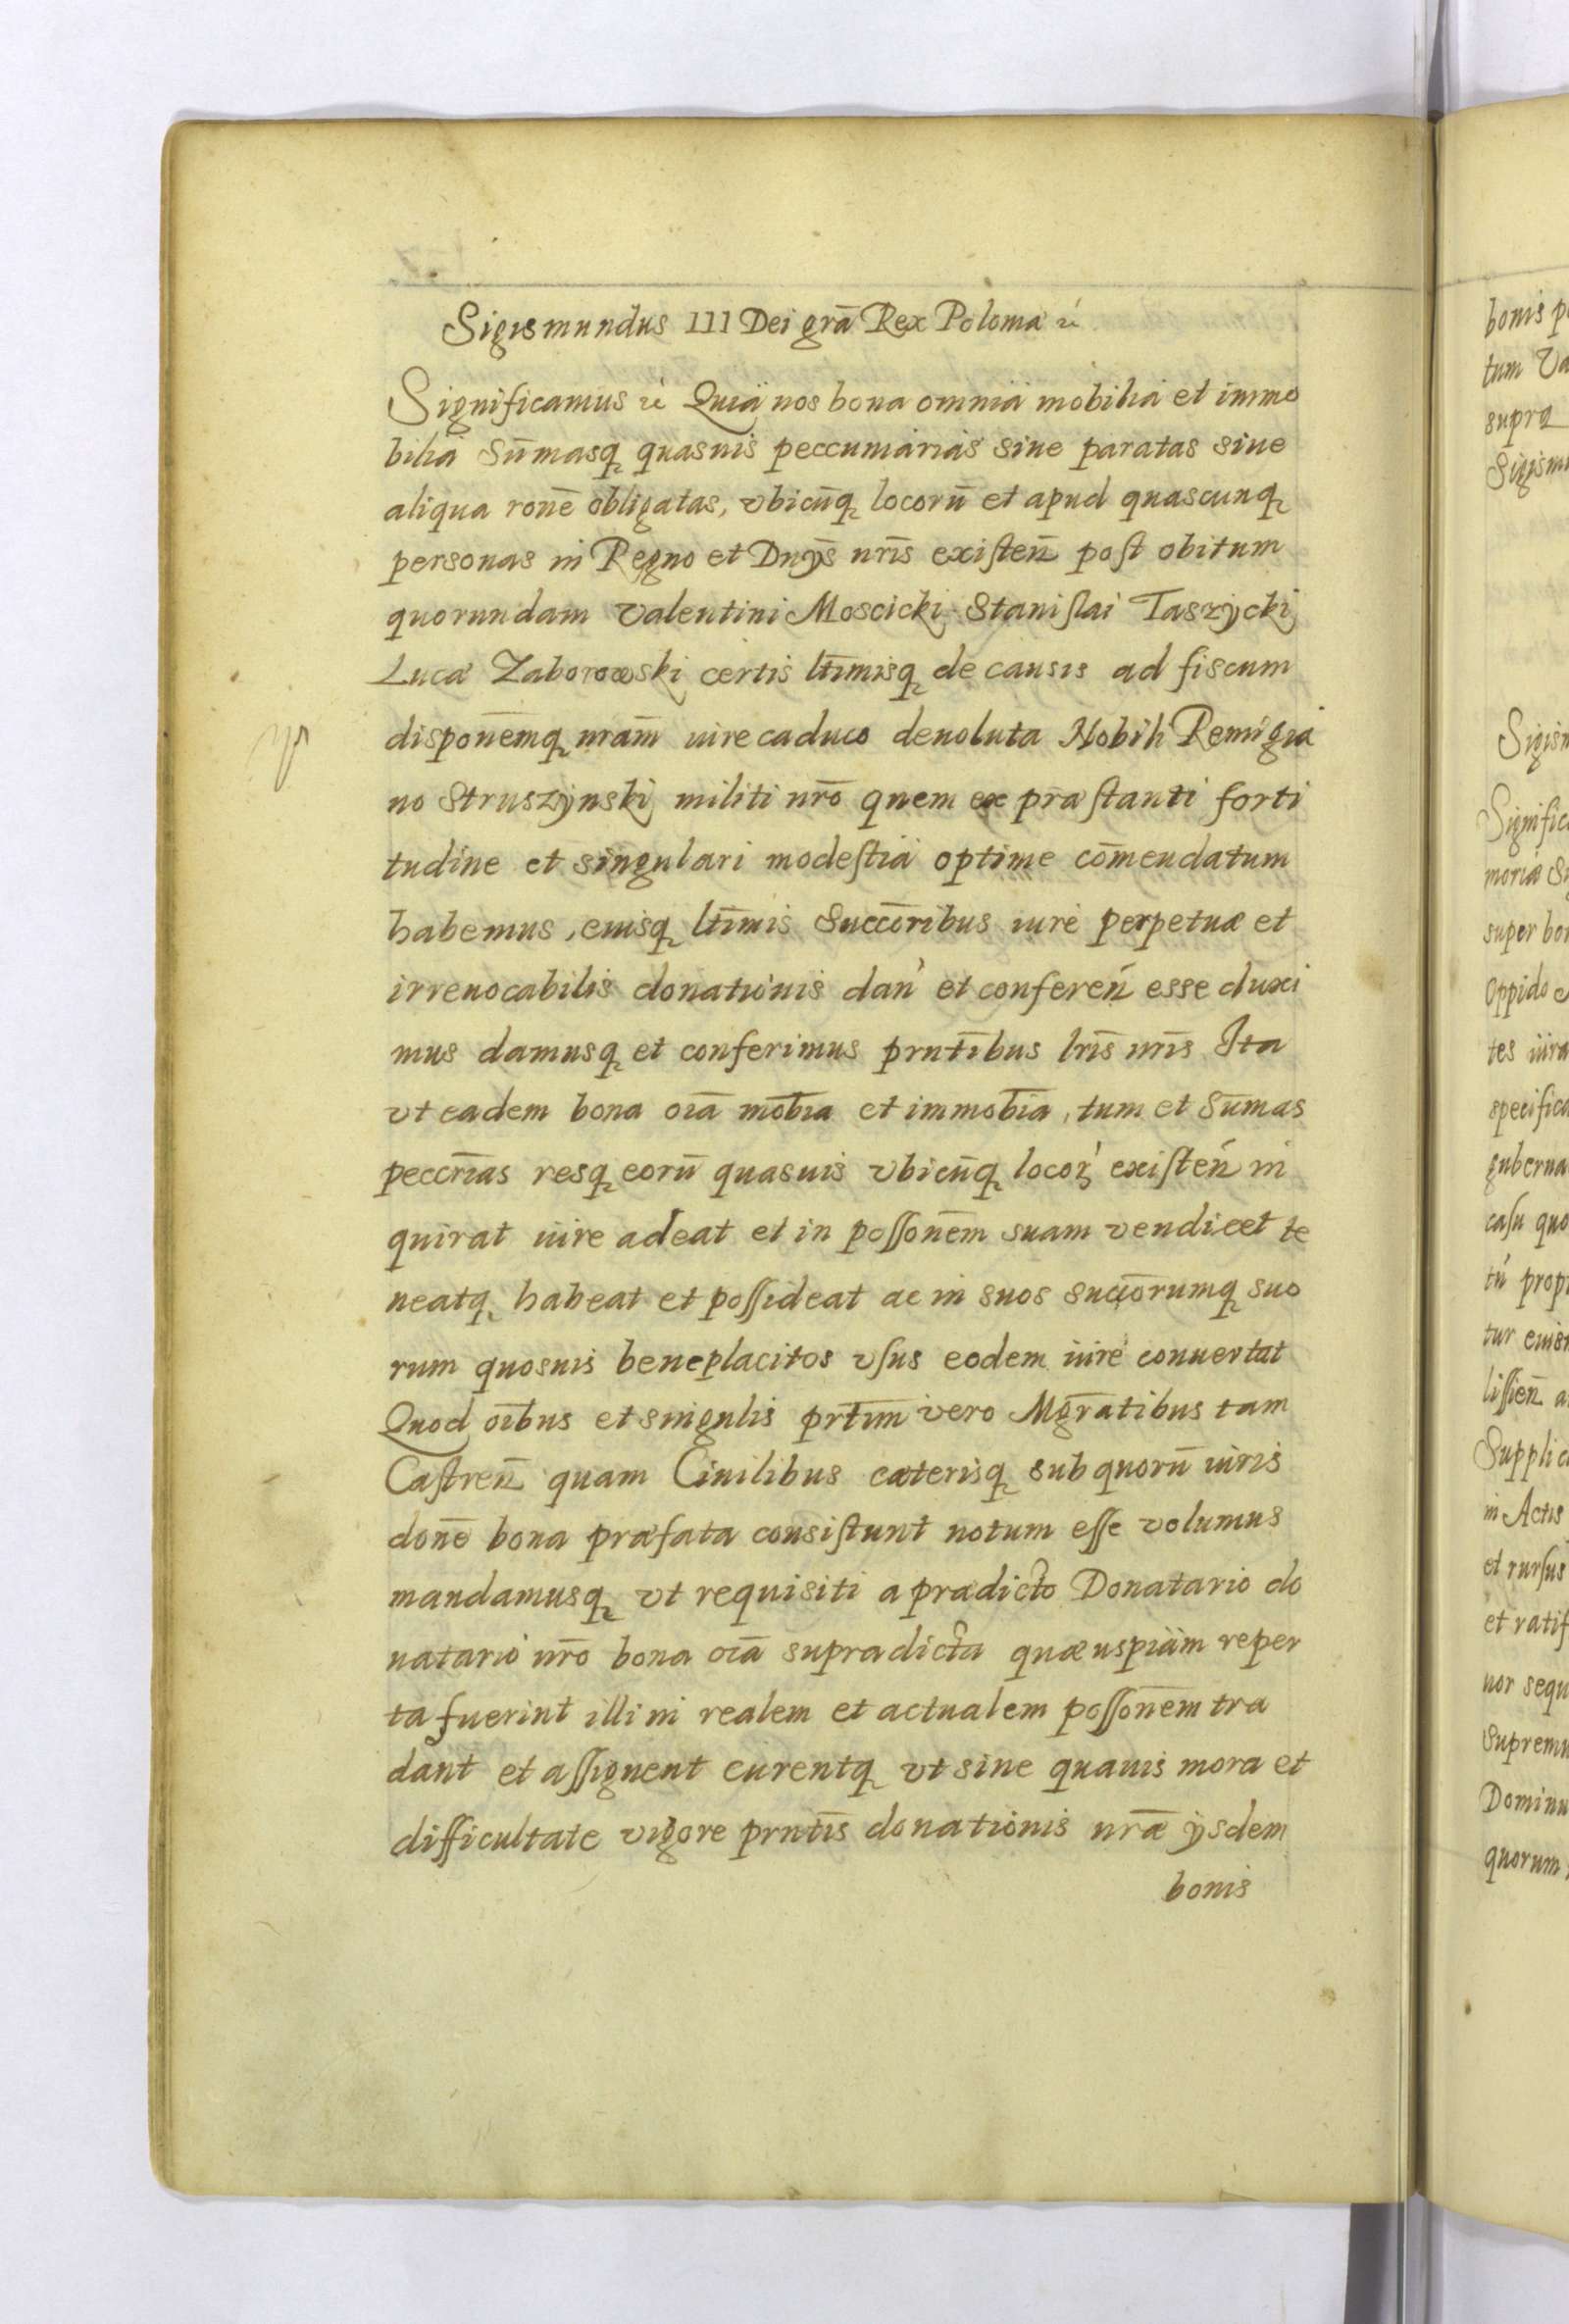 Sigismundus III Dei grā Rex Poloniæ ꝛc
Significamus ꝛc Quia nos bona omnia mobilia et immo
bilia Sūmasq quasuis peccuniarias siue paratas siue
aliqua ronē obligatas, vbicūq locorū et apud quascunq
personas in Regno et Dnÿs nrīs existen̄ post obitum
quorundam Valentini Moscicki Stanislai Taszÿcki
Lucæ Zaborowski certis ltīmisq de causis ad fiscum
disponēmq nram̄ iure caduco deuoluta Nobili Remigia
no Struszÿnski militi nrō quem ex præstanti forti
tudine et singulari modestia optime cōmendatum
habemus, eiusq ltīmis Succōribus iure perpetuæ et
irreuocabilis donationis dan̄ et conferen̄ esse duxi
mus damusq et conferimus prntībus lrīs nrīs Ita
vt eadem bona oīa mobīa et immobīa, tum et Sūmas
peccrīas resq eorū quasuis vbicūq locoꝝ existen̄ in
quirat iure adeat et in possonēm suam vendicet te
neatq habeat et possideat ac in suos succōrumq suo
rum quosuis beneplacitos vsus eodem iure conuertat
Quod oībus et singulis prtīm vero Mgrātibus tam
Castren̄ quam Ciuilibus cæterisq sub quorū iuris
donē bona præfata consistunt notum esse volumus
mandamusq vt requisiti a prædicto Donatario do
natario nrō bona oīa supradicta quæ uspiam reper
ta fuerint illi in realem et actualem possonēm tra
dant et assignent curentq vt sine quauis mora et
difficultate vigore prntīs donationis nrǣ ÿsdem
bonis
bonis p
tum Va
supra
Sigism
Sigism
Signific
moriæ S
super bo
Oppido
tes iura
specifica
guberna
casu quo
prop
tur eius
lissien̄ a
Supplic
in Actis
et rursus
et ratif
nor sequ
Supremu
Dominu
quorum